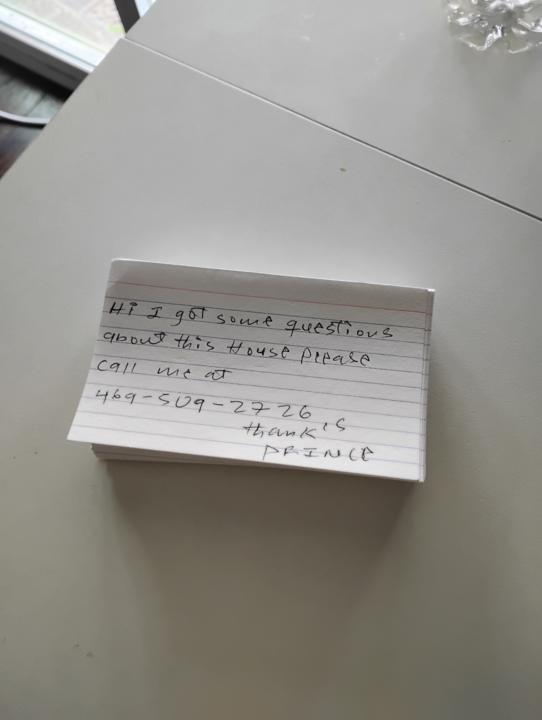 Hi I got some questions
about this House please
call me at
469-509-2726
thank's
PRINCE